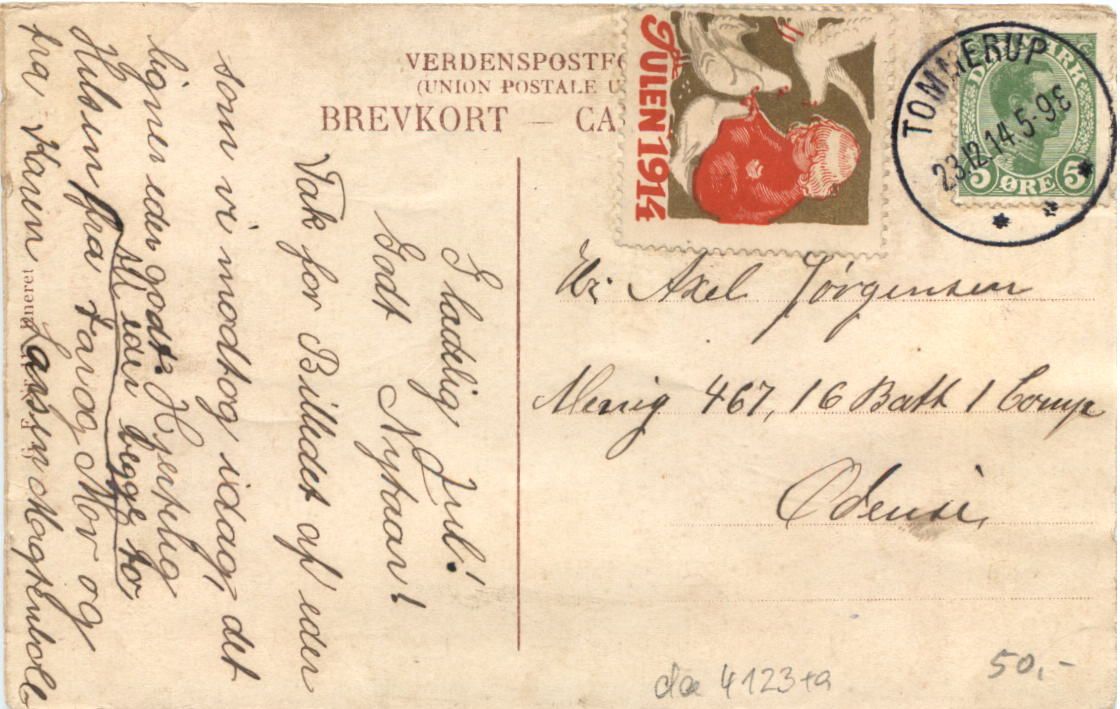 VERDENSPOSTFO
(UNION POSTALE U
BREVKORT — CA
JULEN 1914
DANMARK
5 ØRE 5
TOMMERUP
23.12.14.5-9E
Hr Axel Jörgensen
Menig 467, 16 Batl 1 Comp
Odense,
Glædlig Jul!
Godt Nytaar!
Tak for Billedet af eder
som vi modtog idag, det
ligner eder godt. Hjertelig
til eder begge to
Hilsen fra Far og Mor og
fra Karen Larsen
neret
da 4123+a
50,-